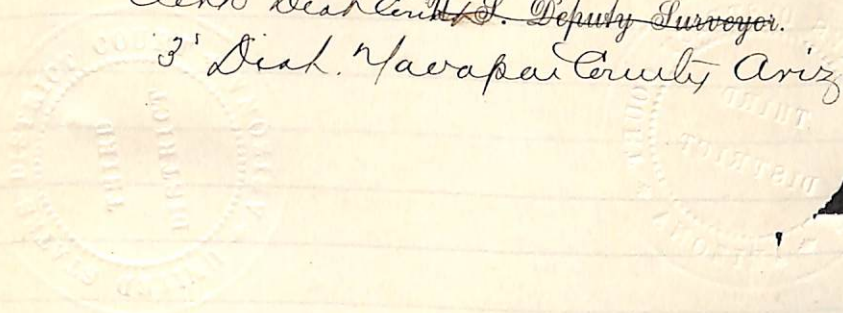 Clerk Dist Court U.S. Deputy Surveyor.
3' Dist. Yavapai County Ariz
THIRD
DISTRICT
THIRD
DISTRICT